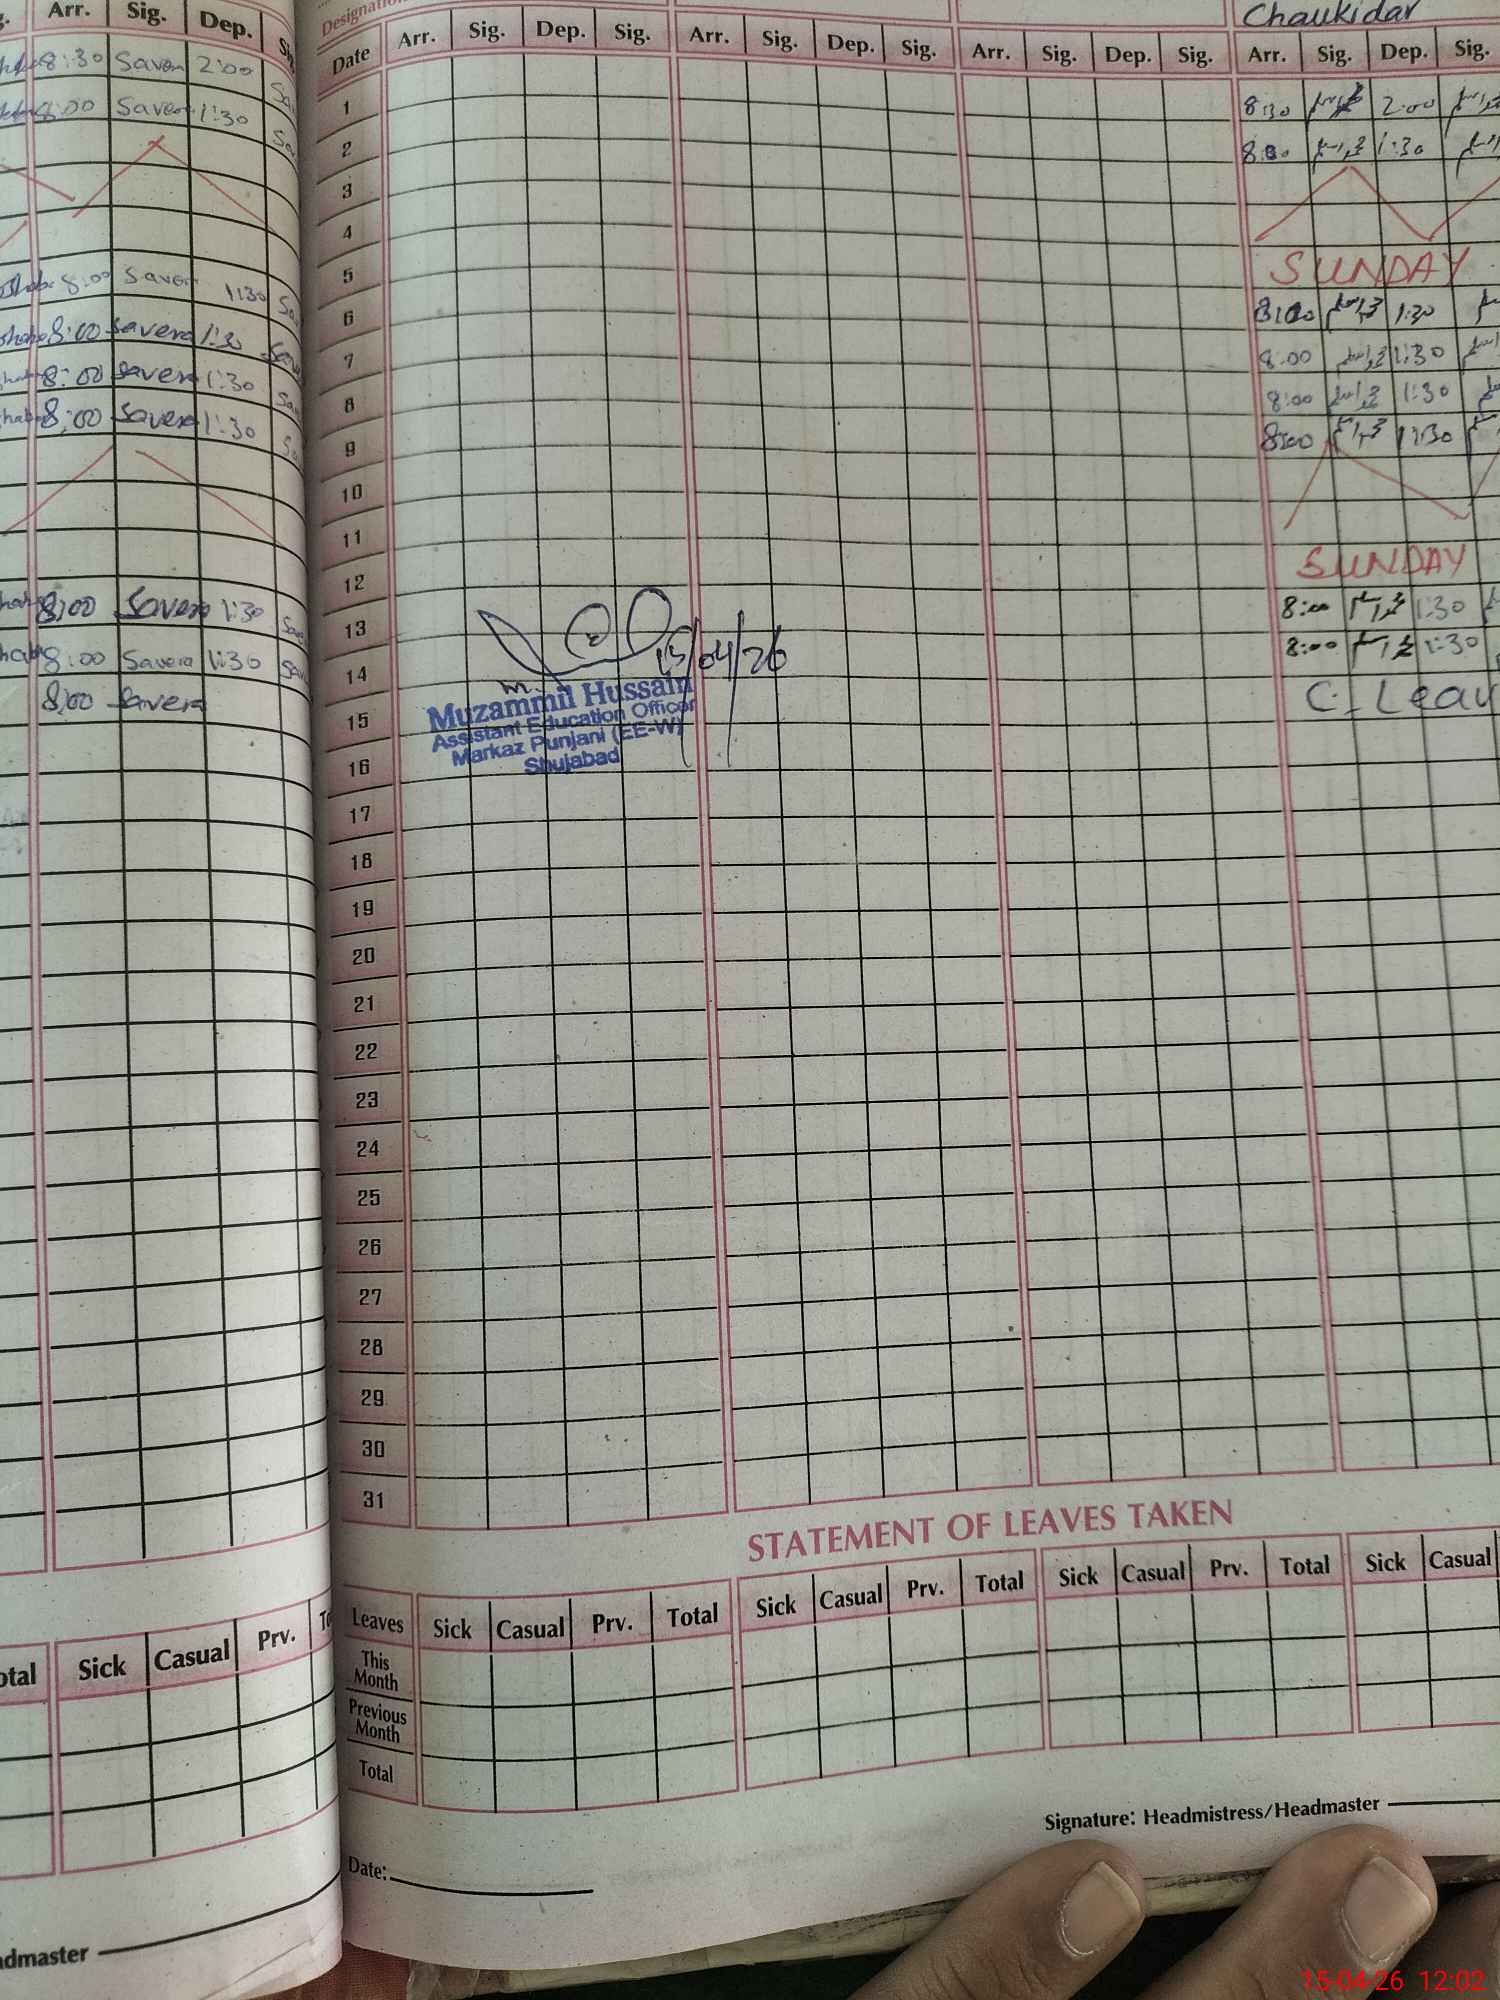 Arr. Sig. Dep.
8:30 Savera 2:00
8:00 Savera 1:30
8:00 Savera 1:30
8:00 Savera 1:30
8:00 Savera 1:30
8:00 Savera 1:30
8:00 Savera 1:30
8:00 Savera 1:30
8:00 Savera
Sick Casual Prv.
Chaukidar
Date Arr. Sig. Dep. Sig. Arr. Sig. Dep. Sig. Arr. Sig. Dep. Sig. Arr. Sig. Dep. Sig.
1 8:30 2:00
2 8:00 1:30
3
4
5 SUNDAY
6 8:00 1:30
7 8:00 1:30
8 8:00 1:30
9 8:00 1:30
10
11
12 SUNDAY
13 8:00 1:30
14 8:00 1:30
15 C. Leav
15/04/26
Muzammil Hussain
Assistant Education Officer
Markaz Punjani (EE-W)
Shujabad
16
17
18
19
20
21
22
23
24
25
26
27
28
29
30
31
STATEMENT OF LEAVES TAKEN
Leaves Sick Casual Prv. Total Sick Casual Prv. Total Sick Casual Prv. Total Sick Casual
This Month
Previous Month
Total
Signature: Headmistress/Headmaster
Date:
15-04-26 12:02